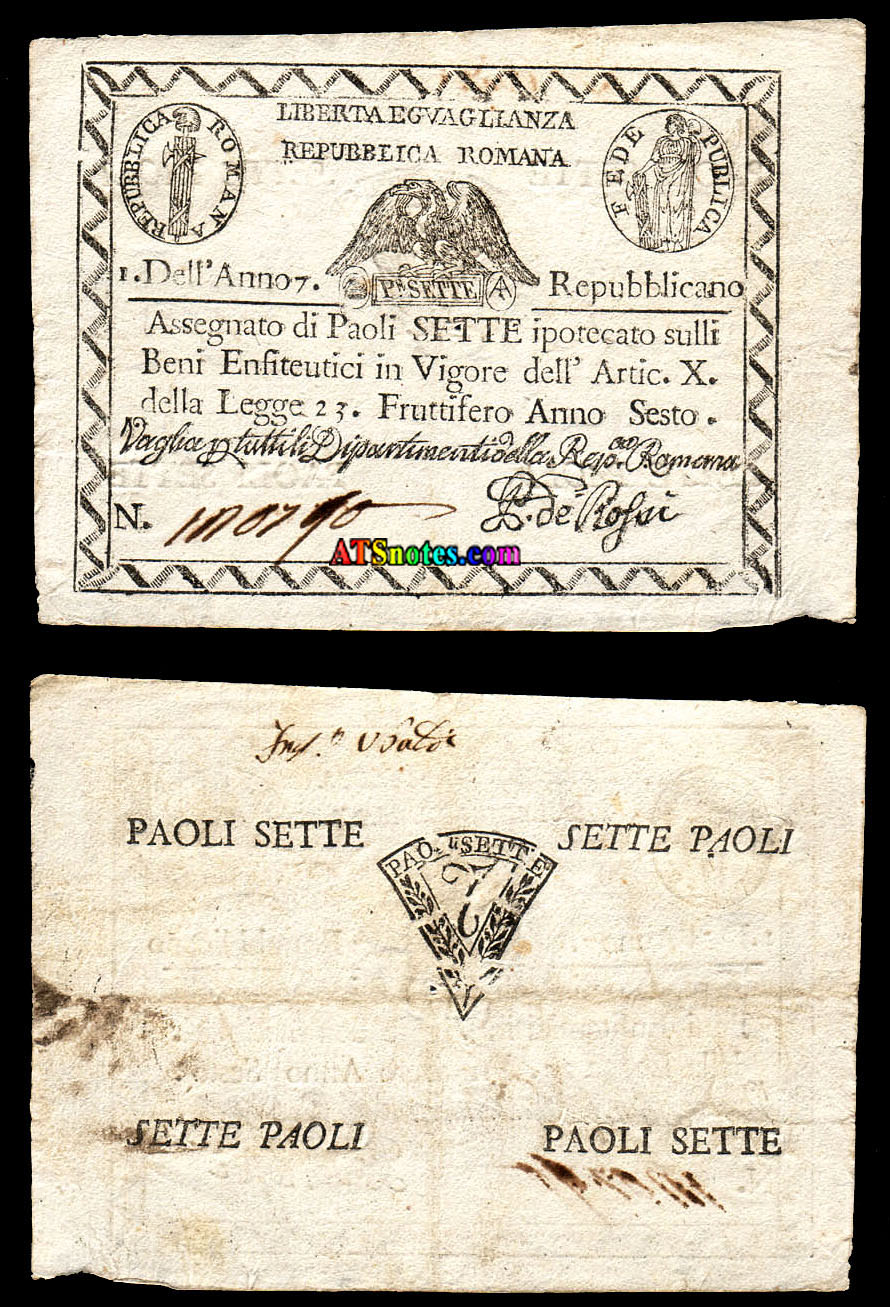 LIBERTA EGVAGLIANZA
REPUBBLICA ROMANA
REPUBBLICA ROMANA
FEDE PUBLICA
1. Dell'Anno 7.
Pᴵ SETTE
Repubblicano
Assegnato di Paoli SETTE ipotecato sulli
Beni Enfiteutici in Vigore dell' Artic. X.
della Legge 23. Fruttifero Anno Sesto.
Vaglia p tutti li Dipartimenti della Rep. Romana
N.
de Rossi
ATSnotes.com
PAOLI SETTE
SETTE PAOLI
PAO.LI SETTE
7
SETTE PAOLI
PAOLI SETTE